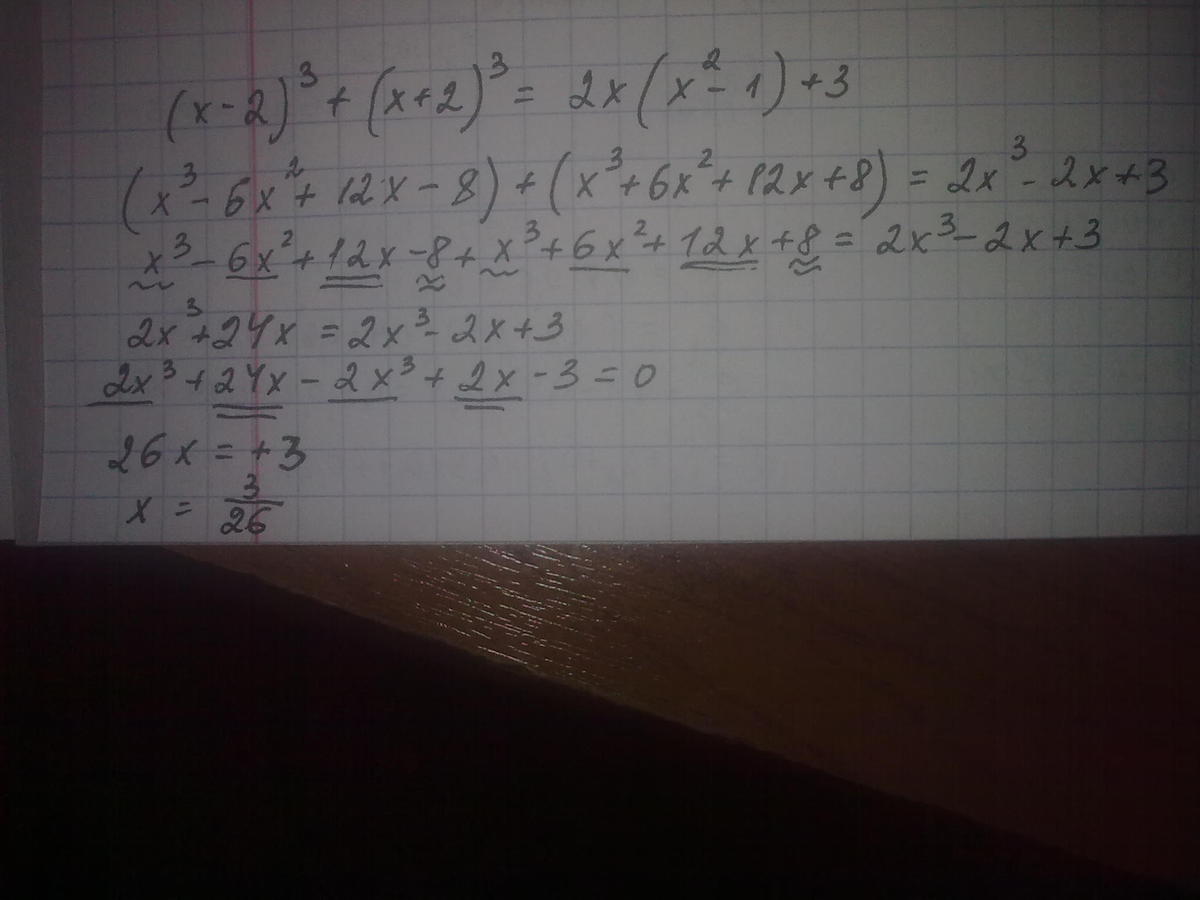 (x-2)³ + (x+2)³ = 2x(x²-1)+3
(x³ - 6x² + 12x - 8) + (x³ + 6x² + 12x + 8) = 2x³ - 2x + 3
x³ - 6x² + 12x - 8 + x³ + 6x² + 12x + 8 = 2x³ - 2x + 3
2x³ + 24x = 2x³ - 2x + 3
2x³ + 24x - 2x³ + 2x - 3 = 0
26x = +3
x = 3/26